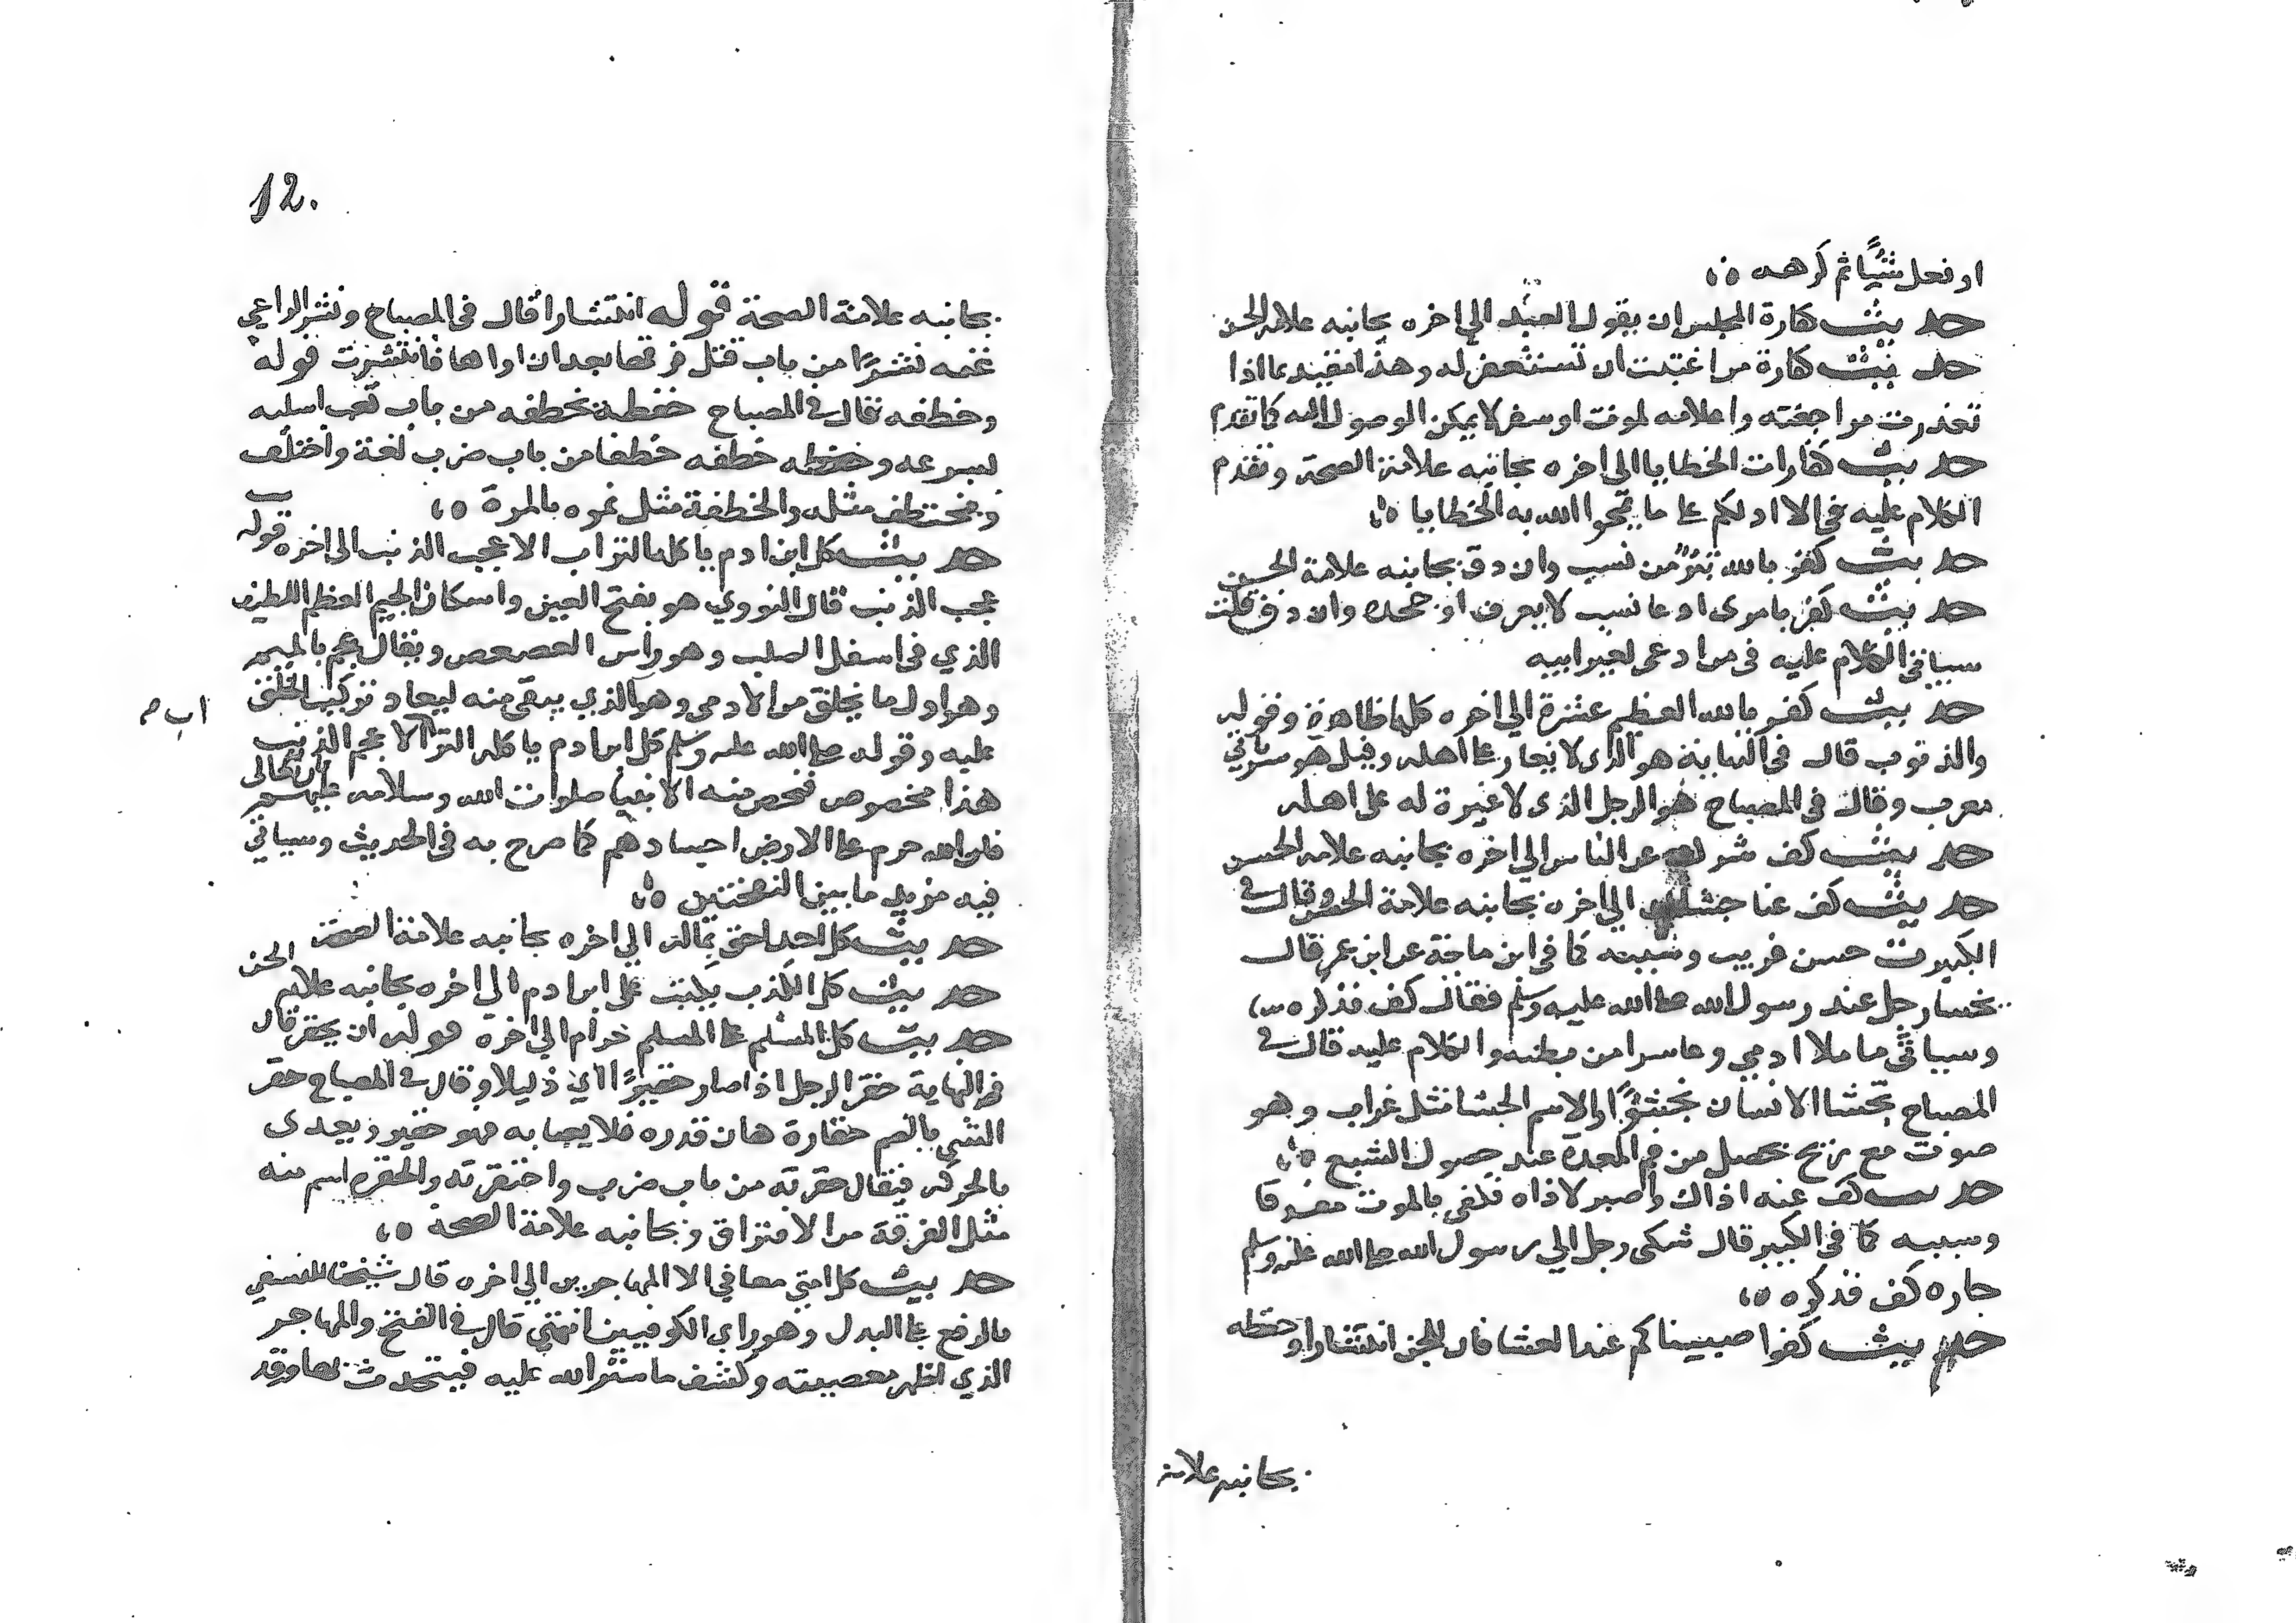 او فعل شيًا ثم كرهه
حديث كفارة المجلس ان يقول العبد الي اخره بجانبه علامة الحسن
حديث كفارة من اغتبت ان تستغفر له وهذا مقيد بما اذا
تعذرت مراجعته واعلامه لموت او سفر لا يمكن الوصول اليه كما تقدم
حديث كفارات الخطايا الى اخره بجانبه علامة الصحة وتقدم
الكلام عليه في الا ادلكم على ما يمحوا الله به الخطايا
حديث كفر بالله تبرؤ من نسب وان دق بجانبه علامة الحسن
حديث كفر بامرى ادعا نسب لا يعرف او جحده وان دق قلت
سياتي الكلام عليه في من ادعى لغير ابيه
حديث كفر بالله العظيم عشرة الي اخره كلها ظاهرة وقوله
والديوب قال في النهاية هو الذى لا يغار على اهله وقيل هو سرياني
معرب وقال في المصباح هو الرجل الذى لا غيرة له على اهله
حديث كف شرك عن الناس الي اخره بجانبه علامة الحسن
حديث كف عنا جشاك الي اخره بجانبه علامة الحسن وقال في
الكبير ت حسن غريب وسببه كما في ابن ماجة عن ابن عمر قال
تجشا رجل عند رسول الله صلى الله عليه وسلم فقال كف فذكره
وسياتي ما ملا ادمي وعا شرا من بطنه والكلام عليه قال في
المصباح تجشا الانسان تجشؤًا والاسم الجشا مثل غراب وهو
صوت مع ريح يحصل من فم المعدة عند حصول الشبع
حديث كف عنه اذاك واصبر لاذاه فكفى بالموت مفرقا
وسببه كما في الكبير قال شكى رجل الي رسول الله صلى الله عليه وسلم
جاره كف فذكره
حديث كفوا صبيانكم عند العشا فان للجن انتشارا وخطفه
بجانبه علامة
12.
بجانبه علامة الصحة قوله انتشارا قال في المصباح ونشر الراعي
غنمه نشرًا من باب قتل فرقها بعد ان اواها فانتشرت قوله
وخطفه قال في المصباح خطفه يخطفه من باب تعب استلبه
بسرعه وخطفه خطفه خطفا من باب ضرب لغة واختلف
ويختطف مثله والخطفة مثل تمره بالمرة
حديث كل ابن ادم ياكله التراب الا عجب الذنب الى اخره قوله
عجب الذنب قال النووي هو بفتح العين واسكان الجيم العظم اللطيف
الذي في اسفل الصلب وهو راس العصعص ويقال عجم بالميم
وهو اول ما يخلق من الادمى وهو الذي يبقى منه ليعاد تركيب الخلق
عليه وقوله صلى الله عليه وسلم كل ابن ادم ياكله التراب الا عجم الذنب
اب م
هذا مخصوص فخص منه الانبيا صلوات الله وسلامه عليهم
فان الله تعالى حرم على الارض اجسادهم كما صرح به في الحديث وسياتي
فيه مزيد ما بين النفختين
حديث كل احد احق بماله الي اخره بجانبه علامة الصحة
حديث كل الكذب يكتب على ابن ادم الي اخره بجانبه علامة الحسن
حديث كل المسلم على المسلم حرام الي اخره قوله ان يحقر قال
في النهاية حقر الرجل اذا صار حقيرًا اي ذليلا وقال في المصباح حقر
الشي بالضم حقارة هان قدره فلا يعبا به فهو حقير ويعدى
بالحركه فيقال حقرته من باب ضرب واحتقرته والحقره اسم منه
مثل الفرقة من الافتراق وبجانبه علامة الصحة
حديث كل امتي معافي الا المهاجرين الي اخره قال شيخنا للنسفي
بالرفع على البدل وهو راى الكوفيين انتهي قال في الفتح والمهاجر
الذي اظهر معصيته وكشف ما ستر الله عليه فيتحدث بها وقد